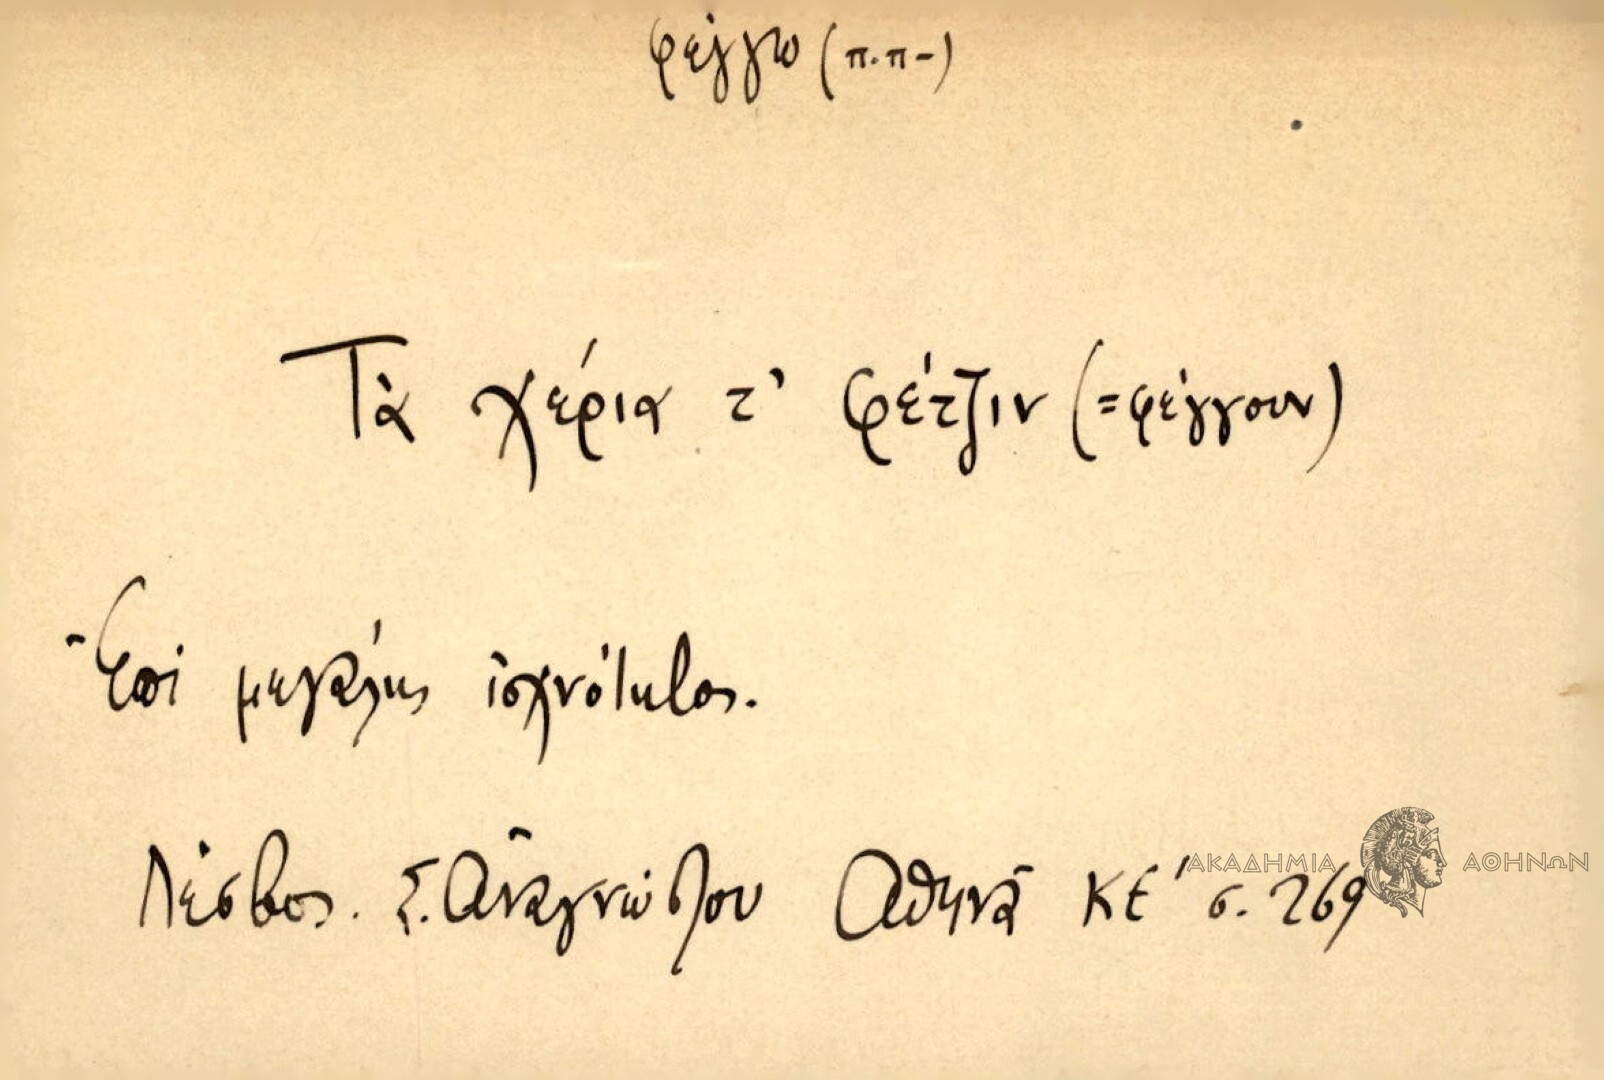 φέγγω (π.π-)
Τὰ χέρια τ' φέτζιν (=φέγγουν)
Ἐπὶ μεγάλης ἰσχνότητος.
Λέσβος. Σ. Ἀναγνώστου Ἀθηνᾶ ΚΕ' σ. 269
ΑΚΑΔΗΜΙΑ ΑΘΗΝΩΝ